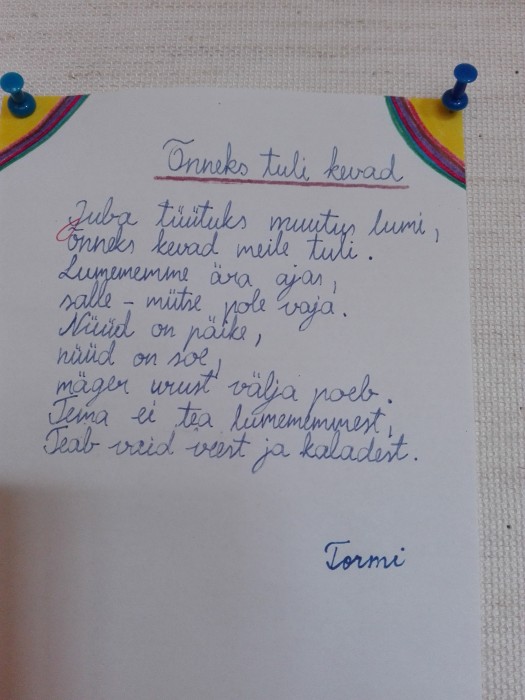 Õnneks tuli kevad
Juba tüütuks muutus lumi,
Õnneks kevad meile tuli.
Lumememme ära ajas,
salle - mütse pole vaja.
Nüüd on päike,
nüüd on soe,
mäger urust välja poeb.
Tema ei tea lumememmest,
Teab vaid veest ja kaladest.
Tormi